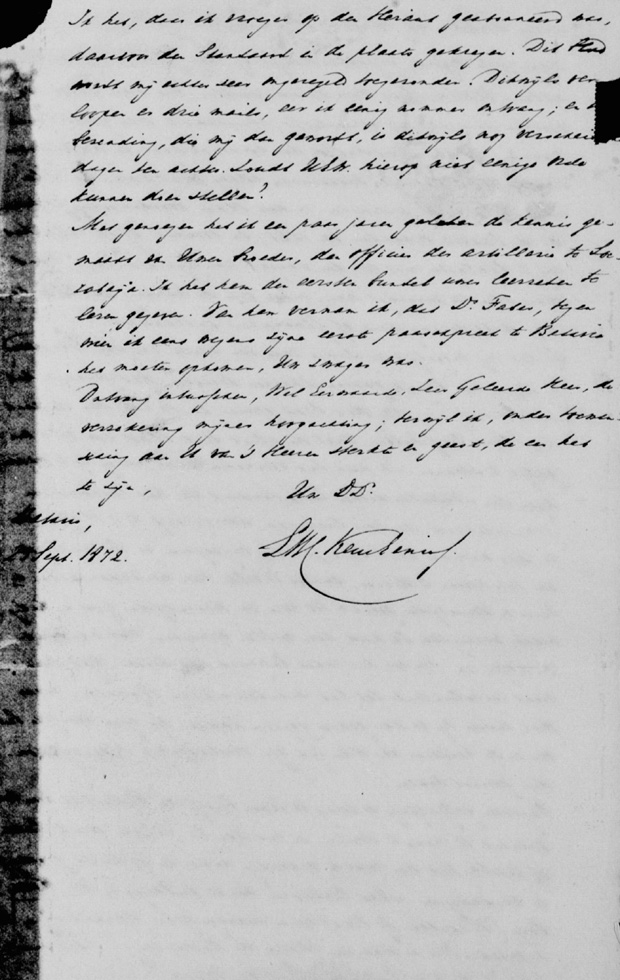 Ik heb, daar ik vroeger op den Heraut geabonneerd was,
daarvoor den Standaard in de plaats gekregen. Dit blad
wordt mij echter zeer ongeregeld toegezonden. Dikwijls ver-
loopen er drie mails, eer ik eenig nommer ontvang; en de
bezending, die mij dan gewordt, is dikwijls nog verscheidene
dagen ten achter. Zoudt UEW. hierop niet eenige orde
kunnen doen stellen?
Met genoegen heb ik een paar jaren geleden de kennis ge-
maakt van Uwen broeder, den officier der artillerie te Soe-
rabaja. Ik heb hem den eersten bundel uwer leerreden te
lezen gegeven. Van hem vernam ik, dat Dr. Faber, tegen
wien ik eens wegens zijne eerste paaschpreek te Batavia
heb moeten opkomen, Uw zwager was.
Ontvang intusschen, Wel Eerwaarde, Zeer Geleerde Heer, de
verzekering mijner hoogachting; terwijl ik, onder toewen-
sching aan U van 's Heeren sterkte en geest, de eer heb
te zijn,
Uw DD.
Sept. 1872.
LWC. Keuchenius.